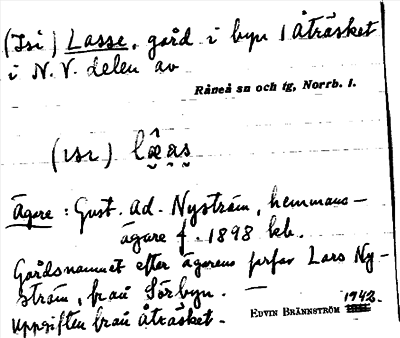 (Isi) Lasse, gård i byn Åträsket
i N.V. delen av
Råneå sn och tg, Norrb. l.
(ɪsɪ)
Ägare: Gust. Ad. Nyström, hemmans-
ägare f. 1898 kb.
Gårdsnamnet efter ägarens farfar Lars Ny-
ström, från Sörbyn. —
Uppgiften från Åträsket.
EDVIN BRÄNNSTRÖM 1942.